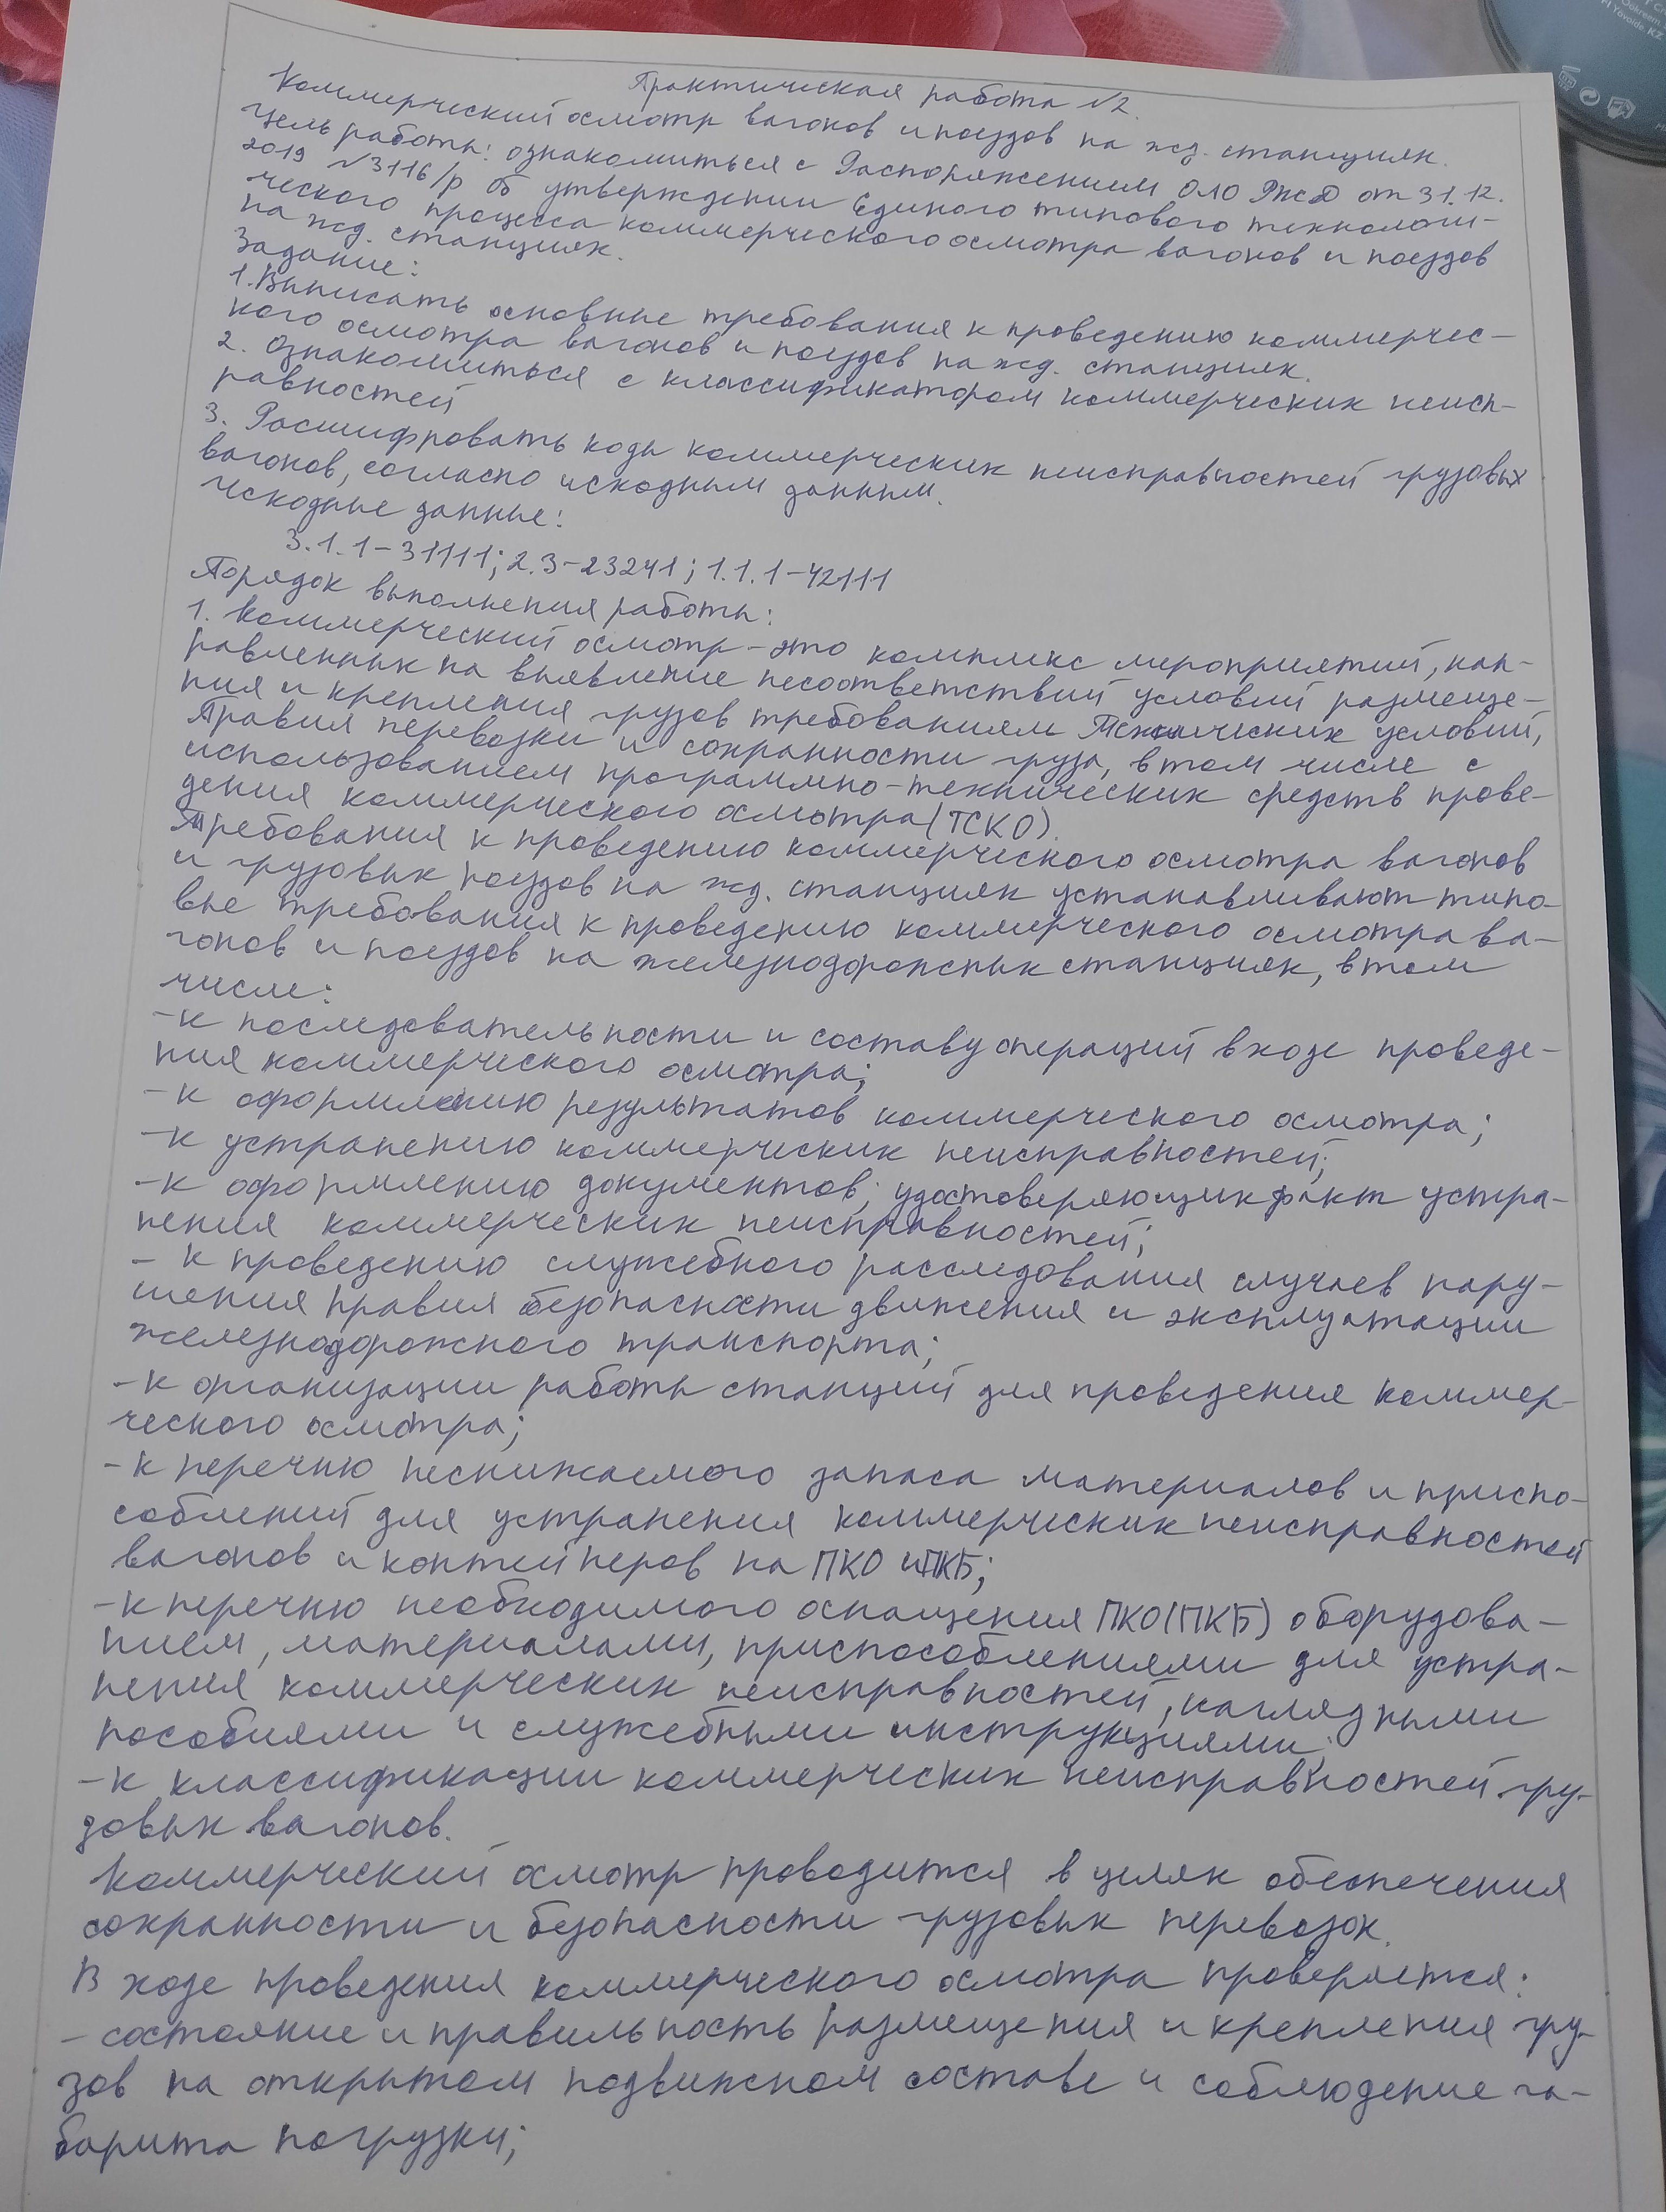 Практическая работа №2.
Коммерческий осмотр вагонов и поездов на жд. станциях.
Цель работы: ознакомиться с Распоряжением ОАО РЖД от 31.12.
2019 №3116/р об утверждении Единого типового технологи-
ческого процесса коммерческого осмотра вагонов и поездов
на жд. станциях.
Задание:
1. Выписать основные требования к проведению коммерчес-
кого осмотра вагонов и поездов на жд. станциях.
2. Ознакомиться с классификатором коммерческих неисп-
равностей
3. Расшифровать коды коммерческих неисправностей грузовых
вагонов, согласно исходным данным.
Исходные данные:
3.1.1-31111; 2.3-23241; 1.1.1-42111
Порядок выполнения работы:
1. Коммерческий осмотр - это комплекс мероприятий, нап-
равленных на выявление несоответствий условий размеще-
ния и крепления грузов требованиям Технических условий,
Правил перевозки и сохранности груза, в том числе с
использованием программно-технических средств прове-
дения коммерческого осмотра (ТСКО).
Требования к проведению коммерческого осмотра вагонов
и грузовых поездов на жд. станциях устанавливают типо-
вые требования к проведению коммерческого осмотра ва-
гонов и поездов на железнодорожных станциях, в том
числе:
- к последовательности и составу операций в ходе проведе-
ния коммерческого осмотра;
- к оформлению результатов коммерческого осмотра;
- к устранению коммерческих неисправностей;
- к оформлению документов, удостоверяющих факт устра-
нения коммерческих неисправностей;
- к проведению служебного расследования случаев нару-
шения правил безопасности движения и эксплуатации
железнодорожного транспорта;
- к организации работы станций для проведения коммер-
ческого осмотра;
- к перечню неснижаемого запаса материалов и приспо-
соблений для устранения коммерческих неисправностей
вагонов и контейнеров на ПКО и ПКБ;
- к перечню необходимого оснащения ПКО(ПКБ) оборудова-
нием, материалами, приспособлениями для устра-
нения коммерческих неисправностей, наглядными
пособиями и служебными инструкциями;
- к классификации коммерческих неисправностей гру-
зовых вагонов.
Коммерческий осмотр проводится в целях обеспечения
сохранности и безопасности грузовых перевозок.
В ходе проведения коммерческого осмотра проверяется:
- состояние и правильность размещения и крепления гру-
зов на открытом подвижном составе и соблюдение га-
барита погрузки;